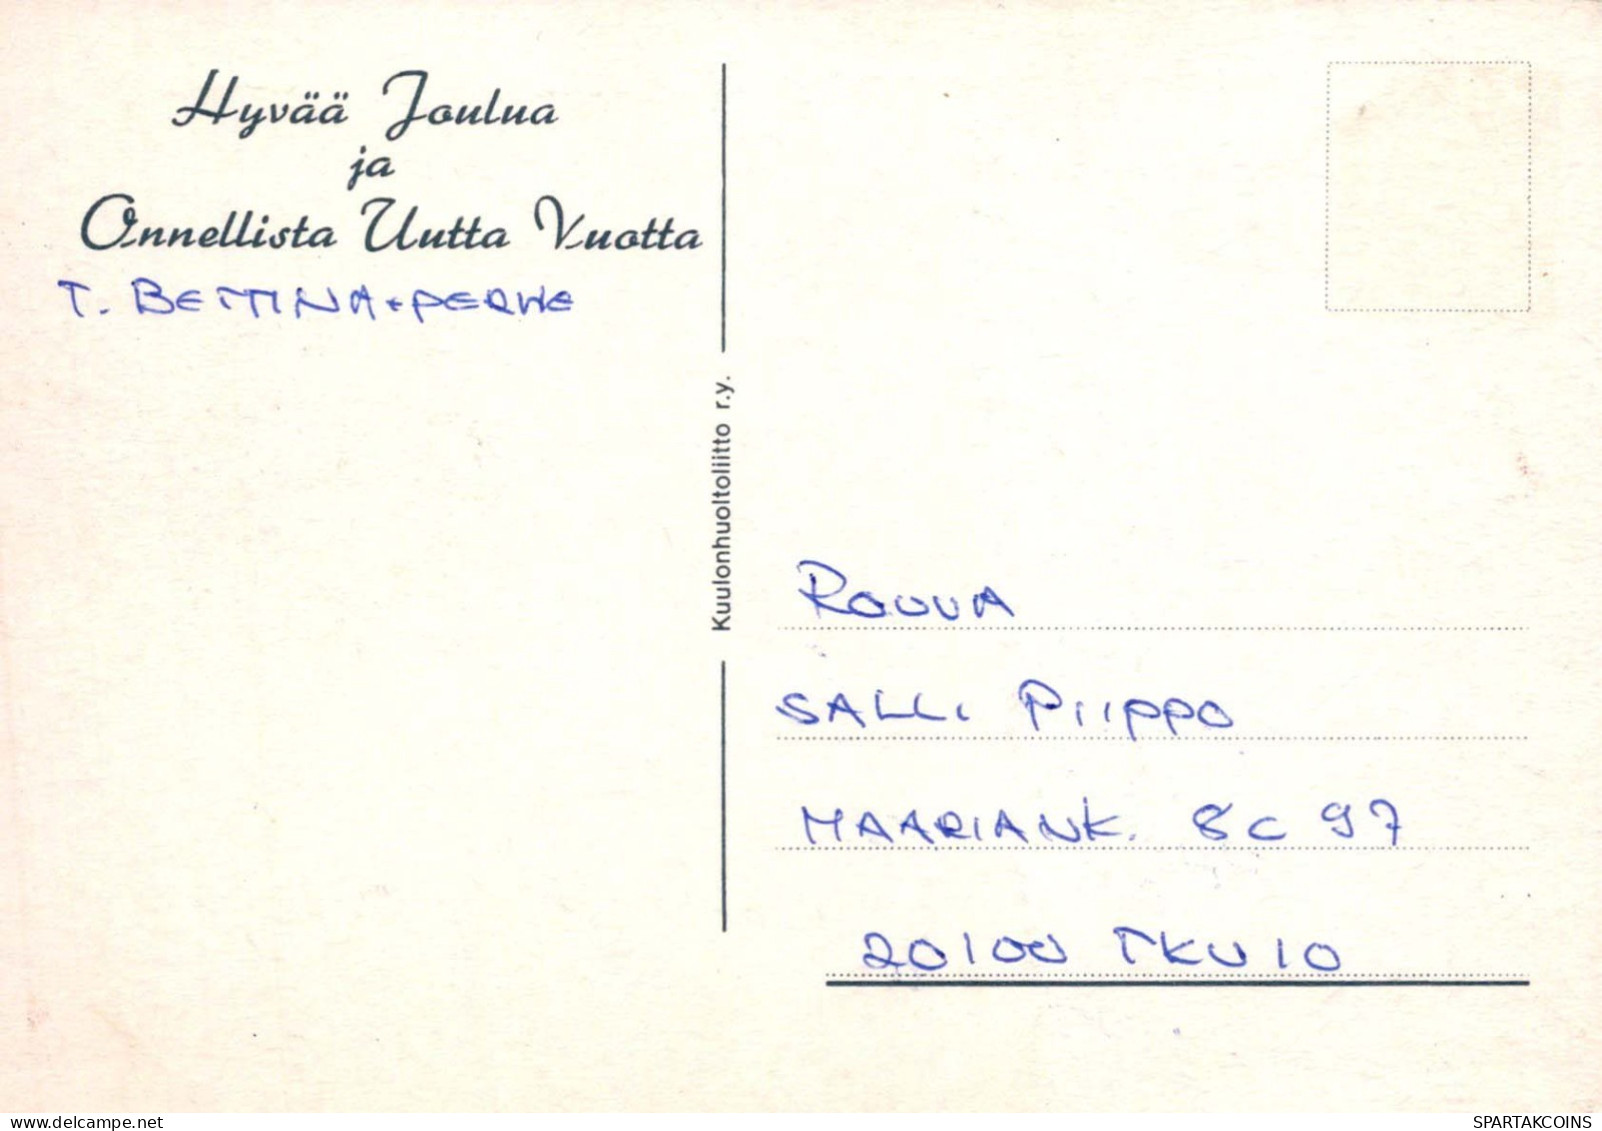 Hyvää Joulua
ja
Onnellista Uutta Vuotta
T. BETTINA + PERHE
Kuulonhuoltoliitto r.y.
ROUVA
SALLI PIIPPO
MAARIANK. 8 C 97
20100 TKU 10
www.delcampe.net
SPARTAKCOINS